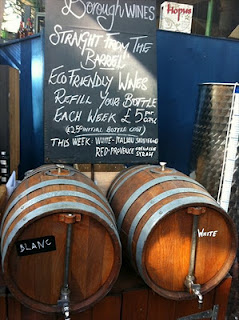 Borough WINES
STRAIGHT FROM THE
BARREL
ECO FRIENDLY WINES
REFILL YOUR BOTTLE
EACH WEEK £5 FOR
(£2.50 INITIAL BOTTLE COST)
THIS WEEK: WHITE - ITALIAN
RED - PROVENCE
Hopus
BLANC
WHITE